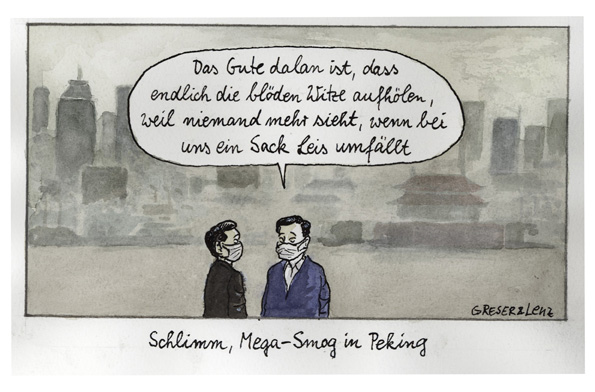 Das Gute dalan ist, dass
endlich die blöden Witze aufhölen,
weil niemand mehr sieht, wenn bei
uns ein Sack Leis umfällt
GRESER&Lenz
Schlimm, Mega-Smog in Peking